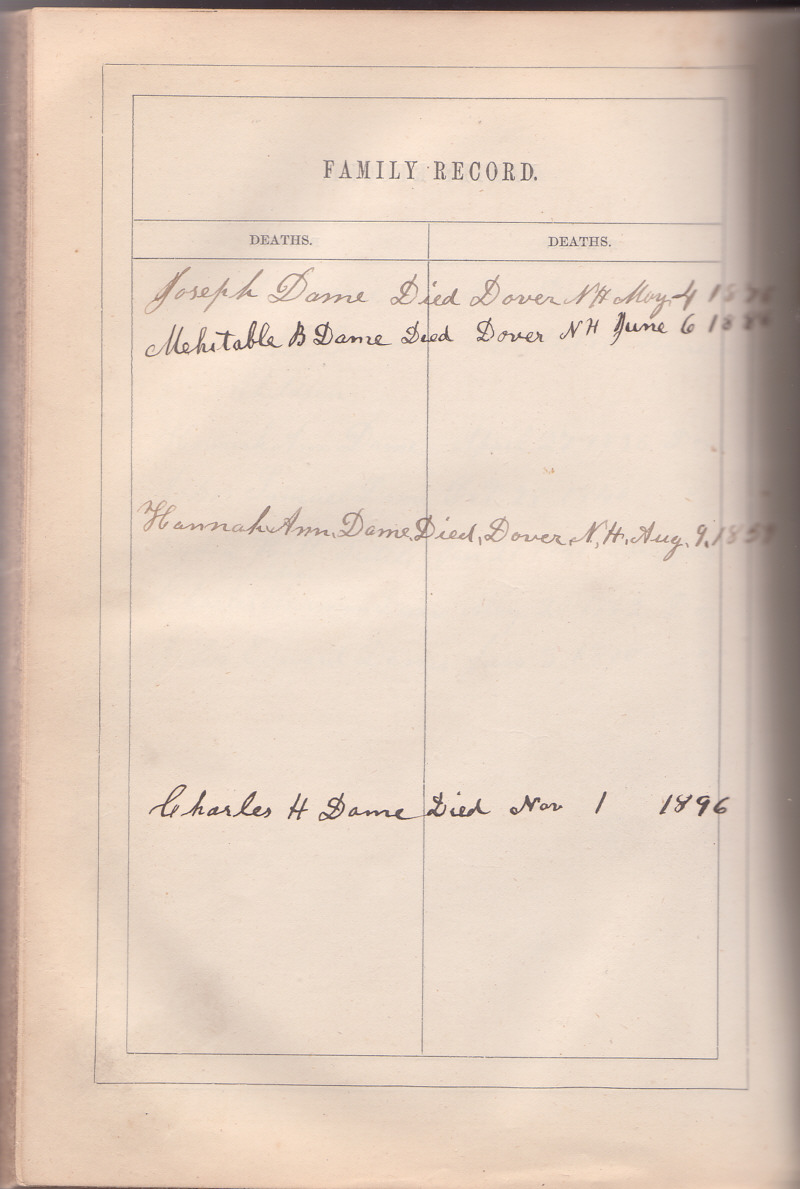 FAMILY RECORD.
DEATHS. DEATHS.
Joseph Dame Died Dover NH May 4
Mehitable B Dame Died Dover NH June 6
Hannah Ann, Dame, Died, Dover, N, H, Aug, 9, 1859
Charles H Dame Died Nov 1 1896